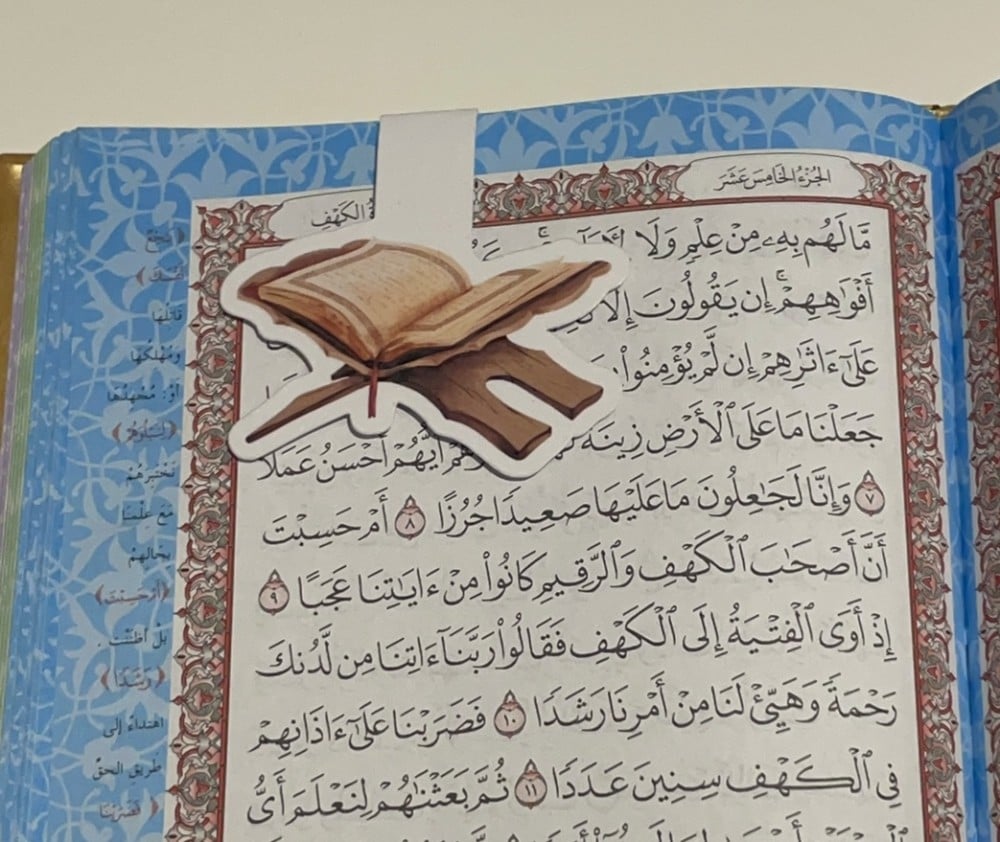 الجُزْءُ الخَامِسَ عَشَرَ
الكَهْفِ
مَّا لَهُم بِهِۦ مِنْ عِلْمٍ وَلَا
أَفْوَٰهِهِمْ ۚ إِن يَقُولُونَ إِلَّا
عَلَىٰٓ ءَاثَٰرِهِمْ إِن لَّمْ يُؤْمِنُوا۟
جَعَلْنَا مَا عَلَى ٱلْأَرْضِ زِينَةً أَيُّهُمْ أَحْسَنُ عَمَلًا
٧ وَإِنَّا لَجَٰعِلُونَ مَا عَلَيْهَا صَعِيدًا جُرُزًا ٨ أَمْ حَسِبْتَ
أَنَّ أَصْحَٰبَ ٱلْكَهْفِ وَٱلرَّقِيمِ كَانُوا۟ مِنْ ءَايَٰتِنَا عَجَبًا ٩
إِذْ أَوَى ٱلْفِتْيَةُ إِلَى ٱلْكَهْفِ فَقَالُوا۟ رَبَّنَآ ءَاتِنَا مِن لَّدُنكَ
رَحْمَةً وَهَيِّئْ لَنَا مِنْ أَمْرِنَا رَشَدًا ١٠ فَضَرَبْنَا عَلَىٰٓ ءَاذَانِهِمْ
فِى ٱلْكَهْفِ سِنِينَ عَدَدًا ١١ ثُمَّ بَعَثْنَٰهُمْ لِنَعْلَمَ أَىُّ
قاتِلُها
ومُهْلِكُها
أوْ: مُجْهِدُها
﴿لِنَبْلُوَهُمْ﴾
نَخْتَبِرَهُمْ
مَعَ عِلْمِنا
بِحالِهِمْ
﴿أَمْ حَسِبْتَ﴾
بلْ أظَنَنْتَ.
﴿رَشَدًا﴾
اهتداءً إلى
طريقِ الحقِّ
﴿فَضَرَبْنَا